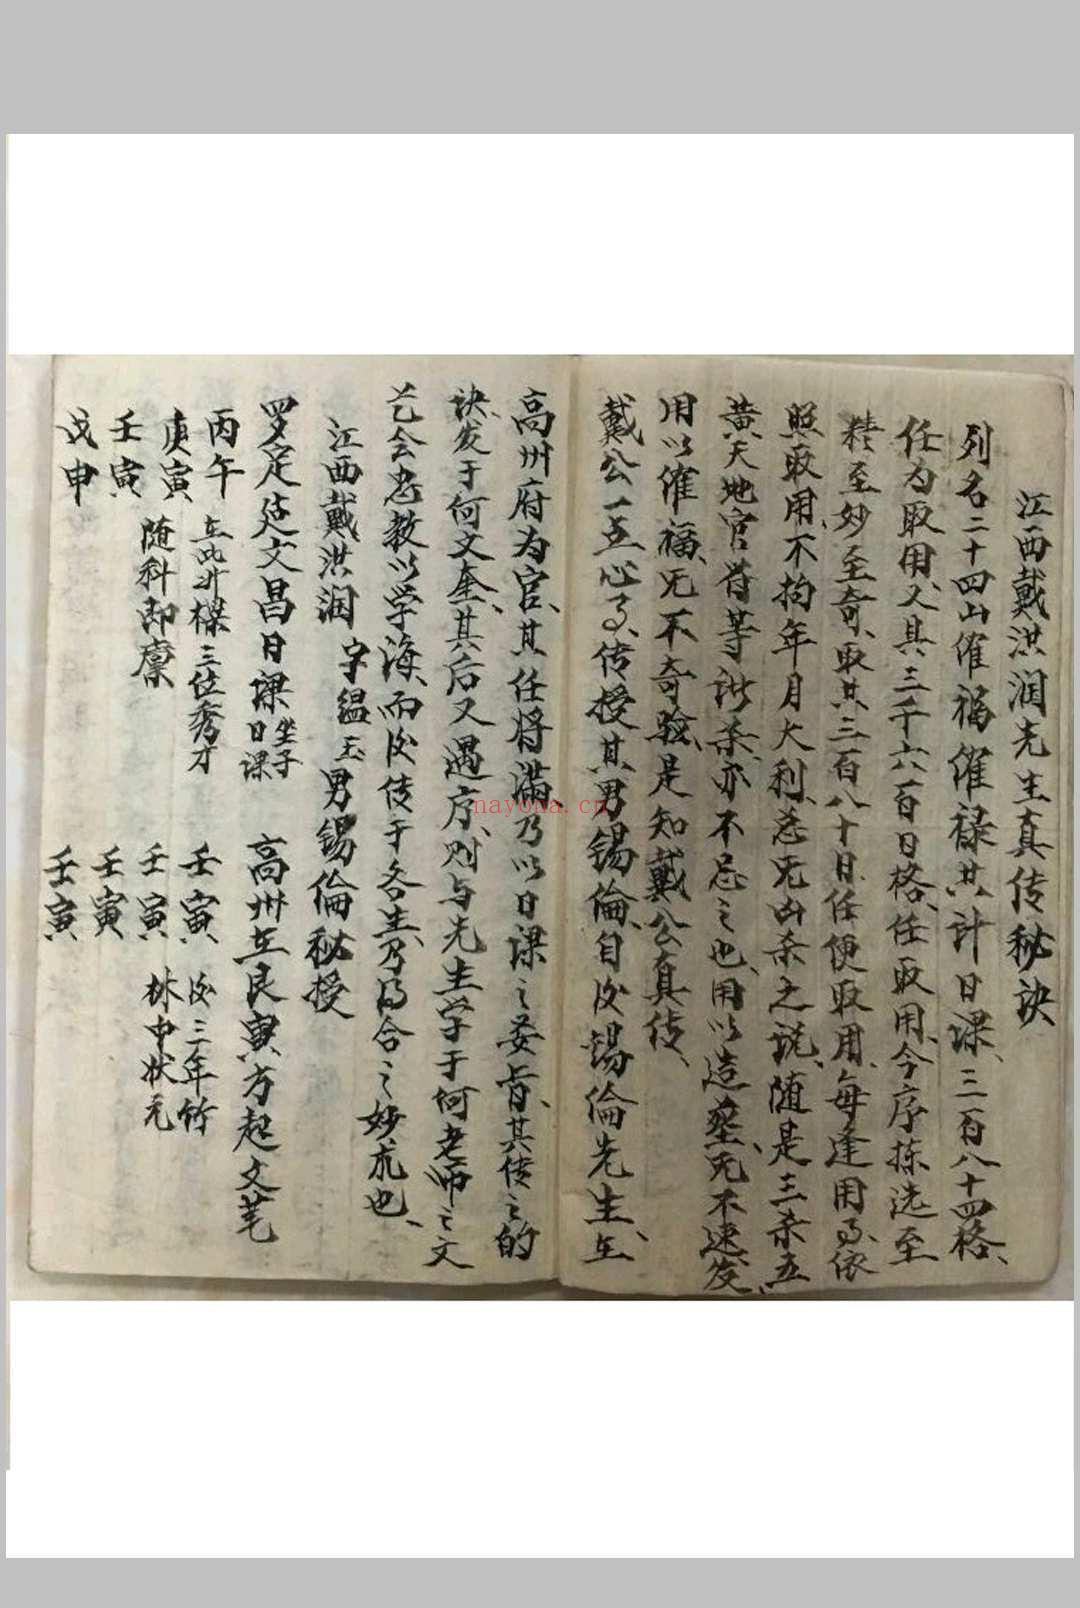 江西戴洪润先生真传秘诀
列名二十四山催福催禄共计日课、三百八十四格、
任为取用、又具三千六百日格、任取用、今序拣选至
精至妙至奇、取共三百八十日任便取用、每逢用了、依
照取用、不拘年月大利、忌无凶杀之说、随是三杀五
黄天地官符等诸杀、亦不忌之也、用以造塟、无不速发、
用以催福、无不奇验、是知戴公真传、
戴公一点心了、传授其男锡倫、自后锡倫先生、在
高州府为官、其任将滿、乃以日课之妾旨、其传之的
诀、发于何文奎、其后又遇序、则与先生学于何老师之文
艺会忠教以学海、而后传于各生、乃得合之妙也、
江西戴洪润 字緼玉 男锡倫秘授
罗定造文昌日课 坐子日课
丙午
庚寅
壬寅
戊申
在此升楪三位秀才
随科即廪
高州在艮寅方起文笔
壬寅
壬寅
壬寅
壬寅
后三年竹
林中状元
nayona.cn